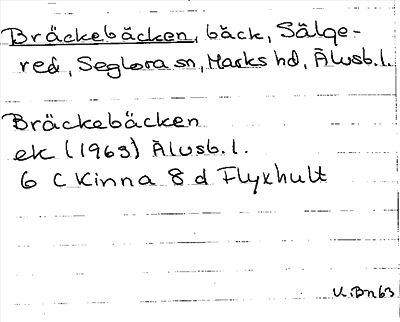 Bräckebäcken, bäck, Sälge-
red, Seglora sn, Marks hd, Älvsb.l.
Bräckebäcken
ek (1963) Älvsb.l.
6 C Kinna 8 d Flyxhult
U.Bn63